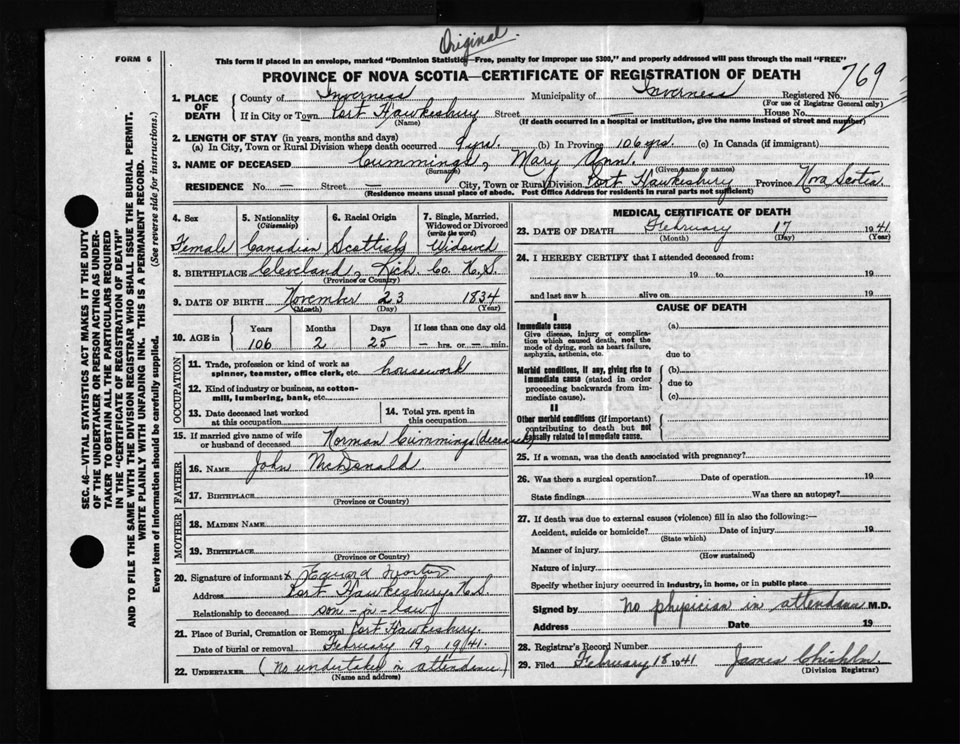 Original.
FORM 6
This form if placed in an envelope, marked "Dominion Statistics—Free, penalty for improper use $300," and properly addressed will pass through the mail "FREE"
PROVINCE OF NOVA SCOTIA—CERTIFICATE OF REGISTRATION OF DEATH
769
1. PLACE OF DEATH
County of Inverness Municipality of Inverness Registered No.
(For use of Registrar General only)
If in City or Town Port Hawkesbury Street House No.
(Name) (If death occurred in a hospital or institution, give the name instead of street and number)
2. LENGTH OF STAY (in years, months and days)
(a) In City, Town or Rural Division where death occurred 9 yrs. (b) In Province 106 yrs. (c) In Canada (if immigrant)
3. NAME OF DECEASED Cummings, Mary Ann.
(Surname) (Given name or names)
RESIDENCE No. — Street — City, Town or Rural Division Port Hawkesbury Province Nova Scotia
(Residence means usual place of abode. Post Office Address for Residents in rural parts not sufficient)
4. Sex
Female
5. Nationality
(Citizenship)
Canadian
6. Racial Origin
Scottish
7. Single, Married, Widowed or Divorced
(write the word)
Widowed
8. BIRTHPLACE Cleveland, Rich. Co. N.S.
(Province or Country)
9. DATE OF BIRTH November 23 1834
(Month) (Day) (Year)
10. AGE in
Years Months Days If less than one day old
106 2 25 — hrs. or — min.
OCCUPATION
11. Trade, profession or kind of work as spinner, teamster, office clerk, etc. housework
12. Kind of industry or business, as cotton-mill, lumbering, bank, etc.
13. Date deceased last worked at this occupation
14. Total yrs. spent in this occupation
15. If married give name of wife or husband of deceased Norman Cummings (deceased)
FATHER
16. NAME John McDonald
17. BIRTHPLACE
(Province or Country)
MOTHER
18. MAIDEN NAME
19. BIRTHPLACE
(Province or Country)
20. Signature of informant x Edward
Address Port Hawkesbury, N.S.
Relationship to deceased son-n-law
21. Place of Burial, Cremation or Removal Port Hawkesbury.
Date of burial or removal February 19, 1941.
22. UNDERTAKER (No undertaker in attendance)
(Name and address)
MEDICAL CERTIFICATE OF DEATH
23. DATE OF DEATH February 17 1941
(Month) (Day) (Year)
24. I HEREBY CERTIFY that I attended deceased from:
19 to 19
and last saw h alive on 19
CAUSE OF DEATH
I
Immediate cause
Give disease, injury or complication which caused death, not the mode of dying, such as heart failure, asphyxia, asthenia, etc.
(a)
due to
Morbid conditions, if any, giving rise to immediate cause (stated in order proceeding backwards from immediate cause).
(b)
due to
(c)
II
Other morbid conditions (if important) contributing to death but not causally related to immediate cause.
25. If a woman, was the death associated with pregnancy?
26. Was there a surgical operation? Date of operation 19
State findings Was there an autopsy?
27. If death was due to external causes (violence) fill in also the following:—
Accident, suicide or homicide? Date of injury 19
(State which)
Manner of injury
(How sustained)
Nature of injury
Specify whether injury occurred in industry, in home, or in public place
Signed by no physician in attendance M.D.
Address Date 19
28. Registrar's Record Number
29. Filed February 18 1941 James Chisholm.
(Division Registrar)
SEC. 46—VITAL STATISTICS ACT MAKES IT THE DUTY
OF THE UNDERTAKER OR PERSON ACTING AS UNDER-
TAKER TO OBTAIN ALL THE PARTICULARS REQUIRED
IN THE "CERTIFICATE OF REGISTRATION OF DEATH"
AND TO FILE THE SAME WITH THE DIVISION REGISTRAR WHO SHALL ISSUE THE BURIAL PERMIT.
WRITE PLAINLY WITH UNFADING INK. THIS IS A PERMANENT RECORD.
Every item of information should be carefully supplied. (See reverse side for instructions.)